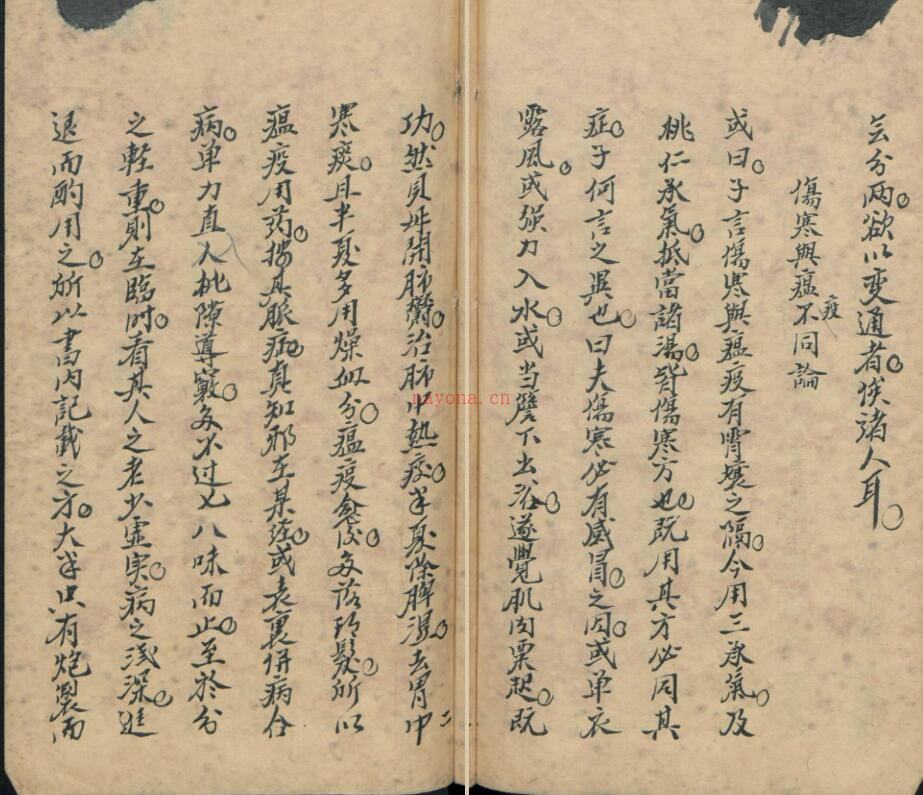 无分两。欲以變通者。俟諸人耳。
傷寒與瘟疫不同論
或曰。子言傷寒與瘟疫有霄壤之隔。今用三承氣。及
桃仁承氣。抵當諸湯。皆傷寒方也。既用其方必同其
症。子何言之異也。曰夫傷寒必有感冒。之因。或单衣
露風。或强力入水。或当簷下出浴。遂覺肌肉粟起。既
功。然貝母開肺鬱。治肺中熱痰。半夏除脾湿。去胃中
寒痰。且半夏多用燥血分。瘟疫愈後。多落髮。所以
瘟疫用药。其脈病。真知邪在某经。或表裏併病合
病。单刀直入批隙導窾。多不过七八味而止。至於分
之軽重。則在臨时。看其人之老少虚実。病之浅深。進
退而酌用之。所以書内記載之方。大半只有炮製而